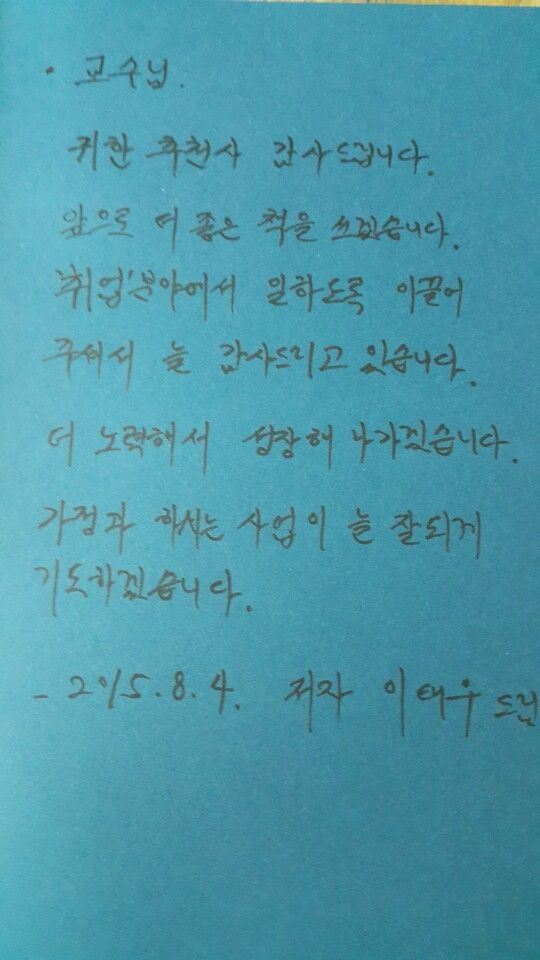 · 교수님.
귀한 추천사 감사드립니다.
앞으로 더 좋은 책을 쓰겠습니다.
'취업'분야에서 일하도록 이끌어
주셔서 늘 감사드리고 있습니다.
더 노력해서 성장해 나가겠습니다.
가정과 하시는 사업이 늘 잘되게
기도하겠습니다.
- 2015. 8. 4. 저자 이태우 드림